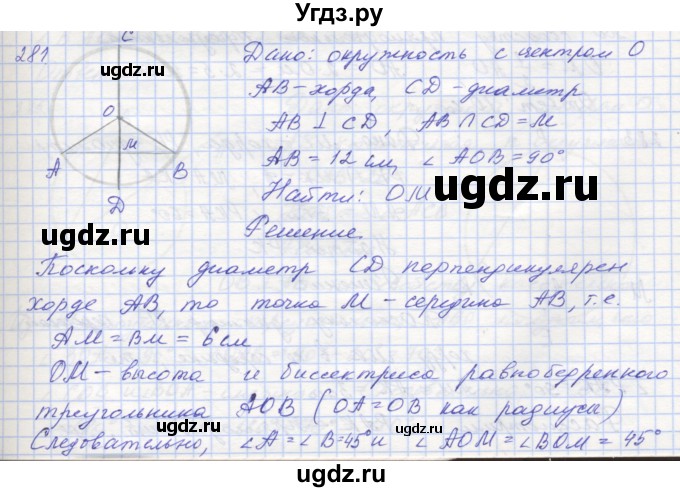 Угдз.ру
281
C
O
м
A
B
D
Дано: окружность с центром O
AB-хорда, CD-диаметр
AB ⊥ CD, AB ∩ CD = M
AB = 12 см, ∠ AOB = 90°
Найти: OM
Решение.
Поскольку диаметр CD перпендикулярен
хорде AB, то точка M - середина AB, т.е.
AM = BM = 6 см
OM - высота и биссектриса равнобедренного
треугольника AOB (OA = OB как радиусы)
Следовательно, ∠A = ∠B = 45° и ∠AOM = ∠BOM = 45°
ugdz.ru
ugdz.ru
ugdz.ru
ugdz.ru
ugdz.ru
ugdz.ru
ugdz.ru
ugdz.ru
ugdz.ru